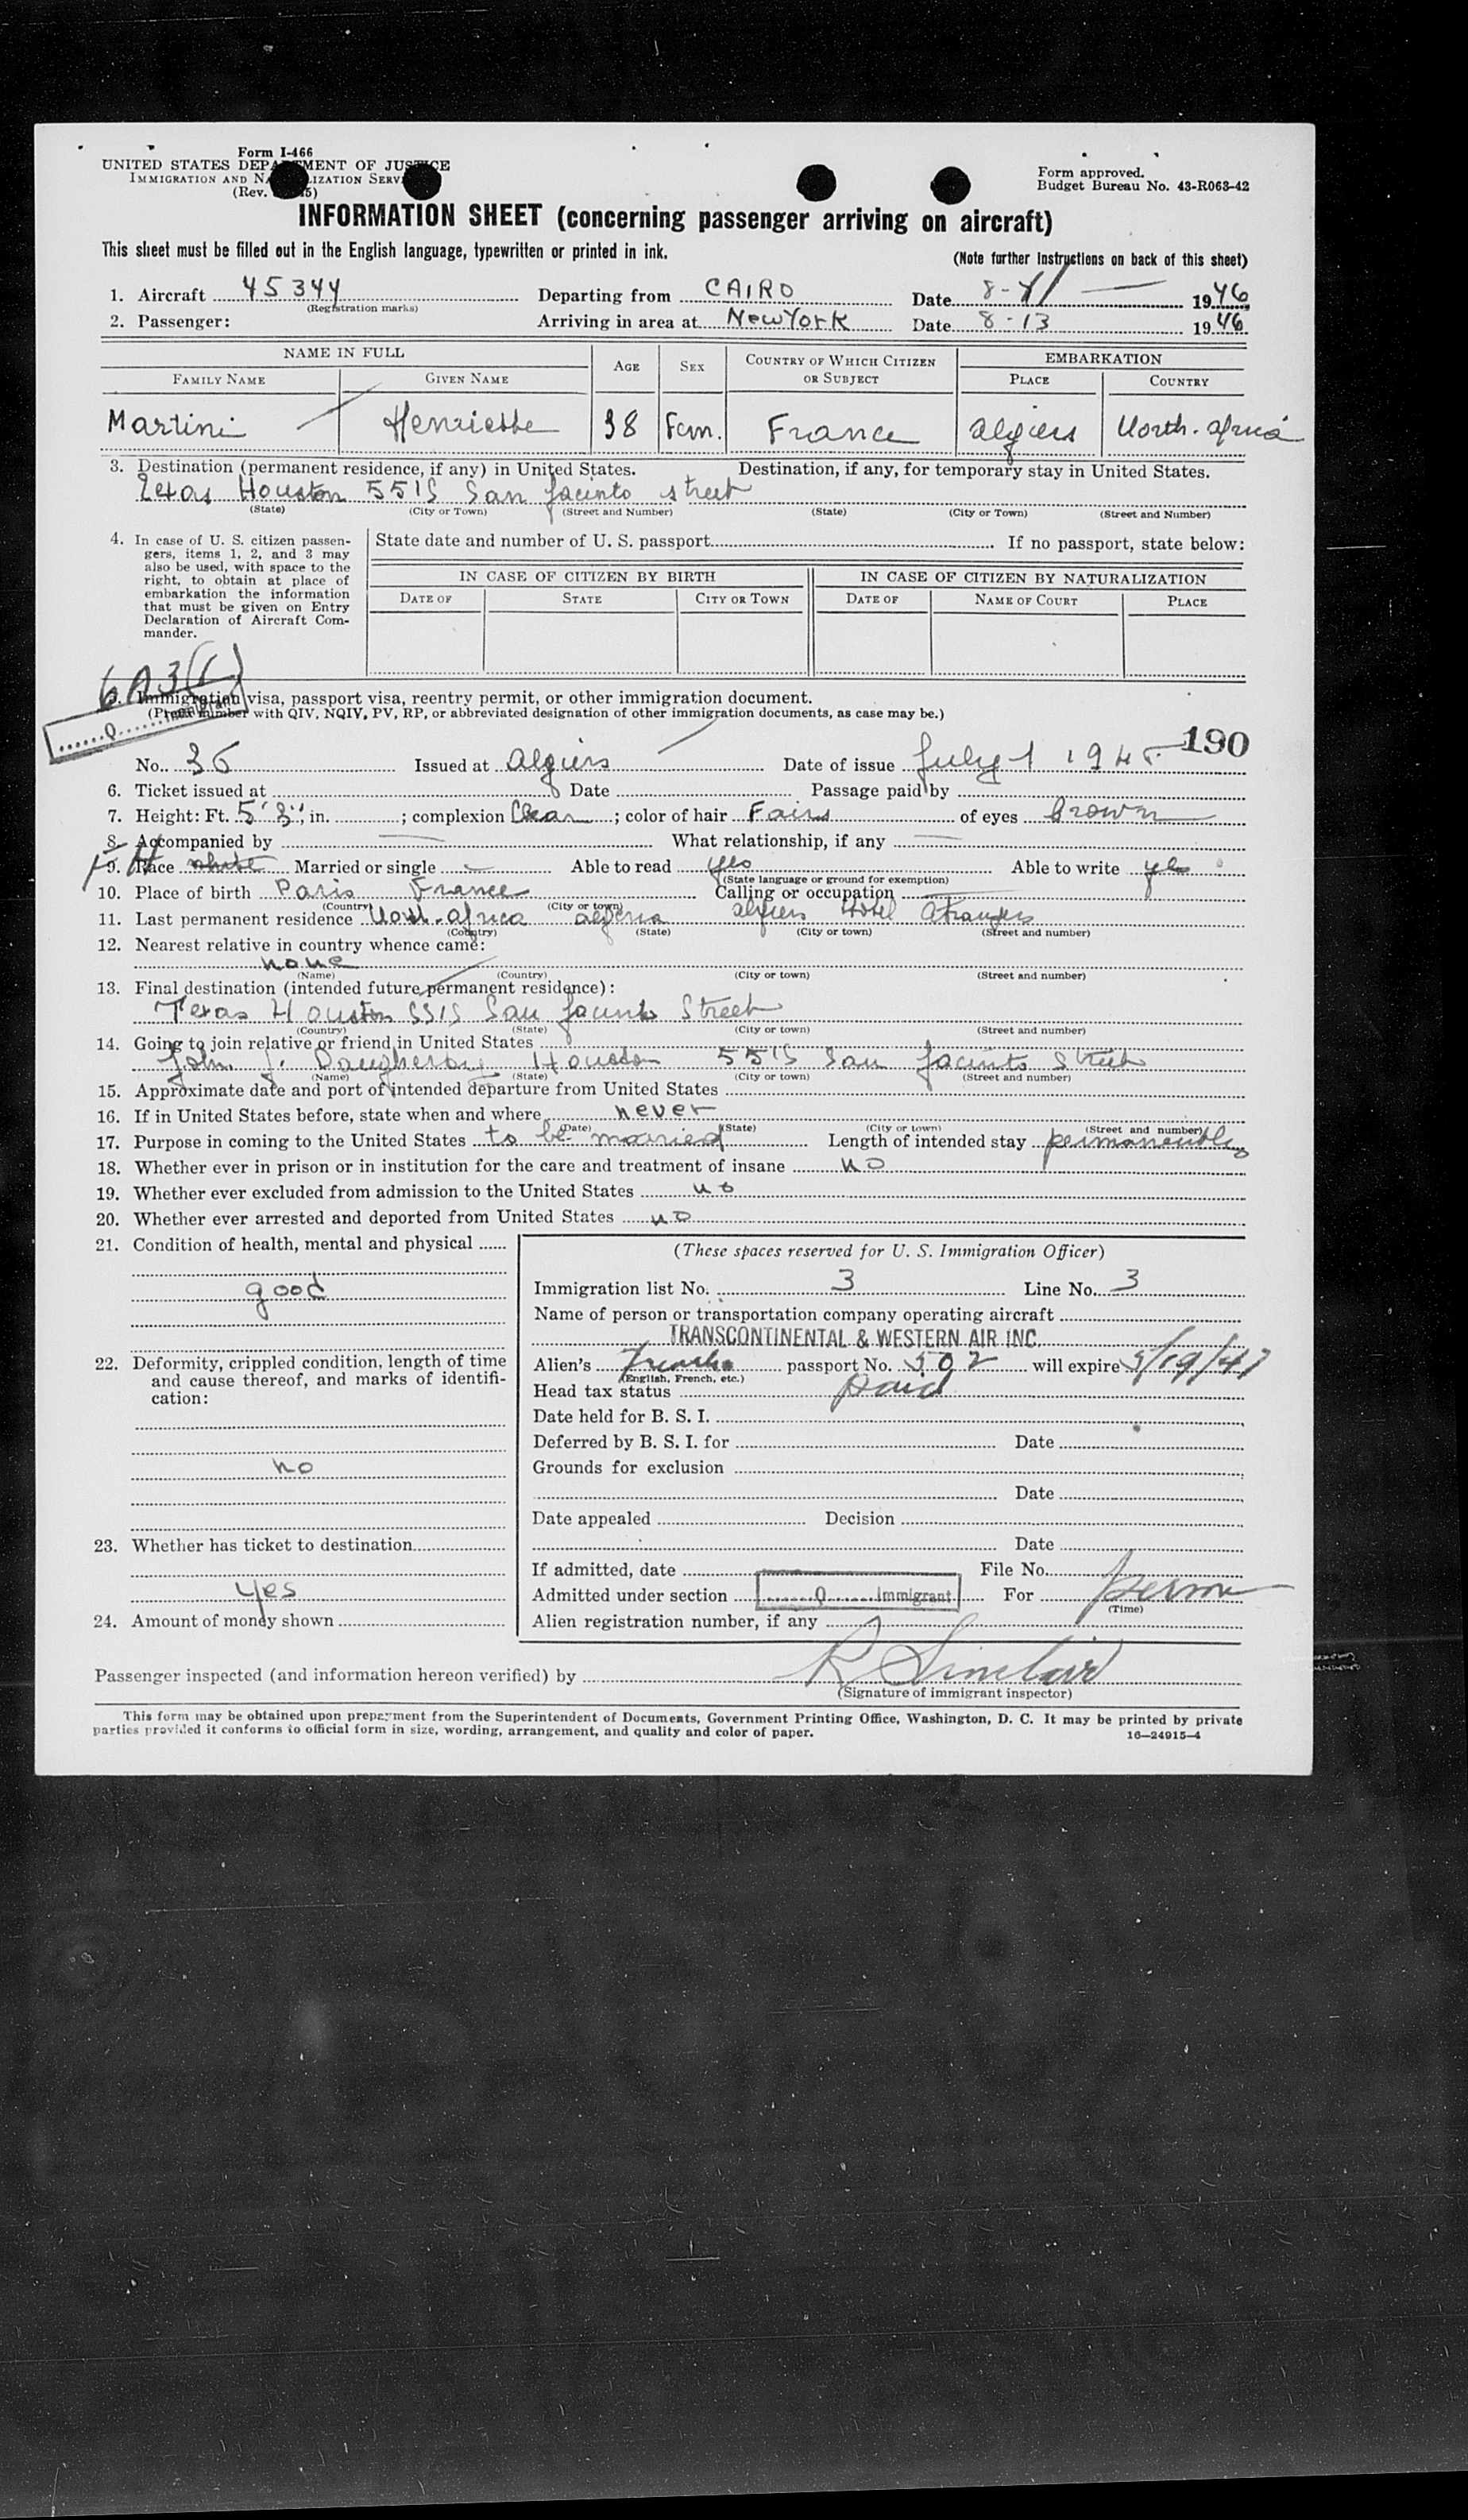 Form I-466
UNITED STATES DEPARTMENT OF JUSTICE
IMMIGRATION AND NATURALIZATION SERVICE
(Rev.
Form approved.
Budget Bureau No. 43-R063-42
INFORMATION SHEET (concerning passenger arriving on aircraft)
This sheet must be filled out in the English language, typewritten or printed in ink.
(Note further instructions on back of this sheet)
1. Aircraft 45344 Departing from CAIRO Date 8-11 1946
(Registration marks)
2. Passenger: Arriving in area at New York Date 8-13 1946
NAME IN FULL AGE SEX COUNTRY OF WHICH CITIZEN OR SUBJECT EMBARKATION
FAMILY NAME GIVEN NAME PLACE COUNTRY
Martini Henriette 38 Fem. France Algiers North-Africa
3. Destination (permanent residence, if any) in United States. Destination, if any, for temporary stay in United States.
Texas Houston 5515 San Jacinto street
(State) (City or Town) (Street and Number) (State) (City or Town) (Street and Number)
4. In case of U. S. citizen passengers, items 1, 2, and 3 may also be used, with space to the right, to obtain at place of embarkation the information that must be given on Entry Declaration of Aircraft Commander.
State date and number of U. S. passport If no passport, state below:
IN CASE OF CITIZEN BY BIRTH IN CASE OF CITIZEN BY NATURALIZATION
DATE OF STATE CITY OR TOWN DATE OF NAME OF COURT PLACE
6A3(1)
Q Immigrant
5. Immigration visa, passport visa, reentry permit, or other immigration document.
(Prefix number with QIV, NQIV, PV, RP, or abbreviated designation of other immigration documents, as case may be.)
190
No. 36 Issued at Algiers Date of issue July 1 194
6. Ticket issued at Date Passage paid by
7. Height: Ft. 5' 3" in. ; complexion Clear ; color of hair Fair of eyes brown
8. Accompanied by — What relationship, if any —
9. Race white Married or single — Able to read yes Able to write yes
(State language or ground for exemption)
10. Place of birth Paris France Calling or occupation
(Country) (City or town)
11. Last permanent residence North-Africa Algeria Algiers Hotel
(Country) (State) (City or town) (Street and number)
12. Nearest relative in country whence came:
none
(Name) (Country) (City or town) (Street and number)
13. Final destination (intended future permanent residence):
Texas Houston 5515 San Jacinto Street
(Country) (State) (City or town) (Street and number)
14. Going to join relative or friend in United States
John J. Daugherty Houston 5515 San Jacinto Street
(Name) (State) (City or town) (Street and number)
15. Approximate date and port of intended departure from United States
16. If in United States before, state when and where never
(Date) (State) (City or town) (Street and number)
17. Purpose in coming to the United States to be married Length of intended stay permanently
18. Whether ever in prison or in institution for the care and treatment of insane no
19. Whether ever excluded from admission to the United States no
20. Whether ever arrested and deported from United States no
21. Condition of health, mental and physical
good
22. Deformity, crippled condition, length of time and cause thereof, and marks of identification:
no
23. Whether has ticket to destination
yes
24. Amount of money shown
(These spaces reserved for U. S. Immigration Officer)
Immigration list No. 3 Line No. 3
Name of person or transportation company operating aircraft
TRANSCONTINENTAL & WESTERN AIR INC.
Alien's French passport No. 502 will expire 5/19/47
(English, French, etc.)
Head tax status paid
Date held for B. S. I.
Deferred by B. S. I. for Date
Grounds for exclusion
Date
Date appealed Decision
Date
If admitted, date File No.
Admitted under section Q Immigrant For perm
(Time)
Alien registration number, if any
Passenger inspected (and information hereon verified) by R Sinclair
(Signature of immigrant inspector)
This form may be obtained upon prepayment from the Superintendent of Documents, Government Printing Office, Washington, D. C. It may be printed by private
parties provided it conforms to official form in size, wording, arrangement, and quality and color of paper.
16—24915-4